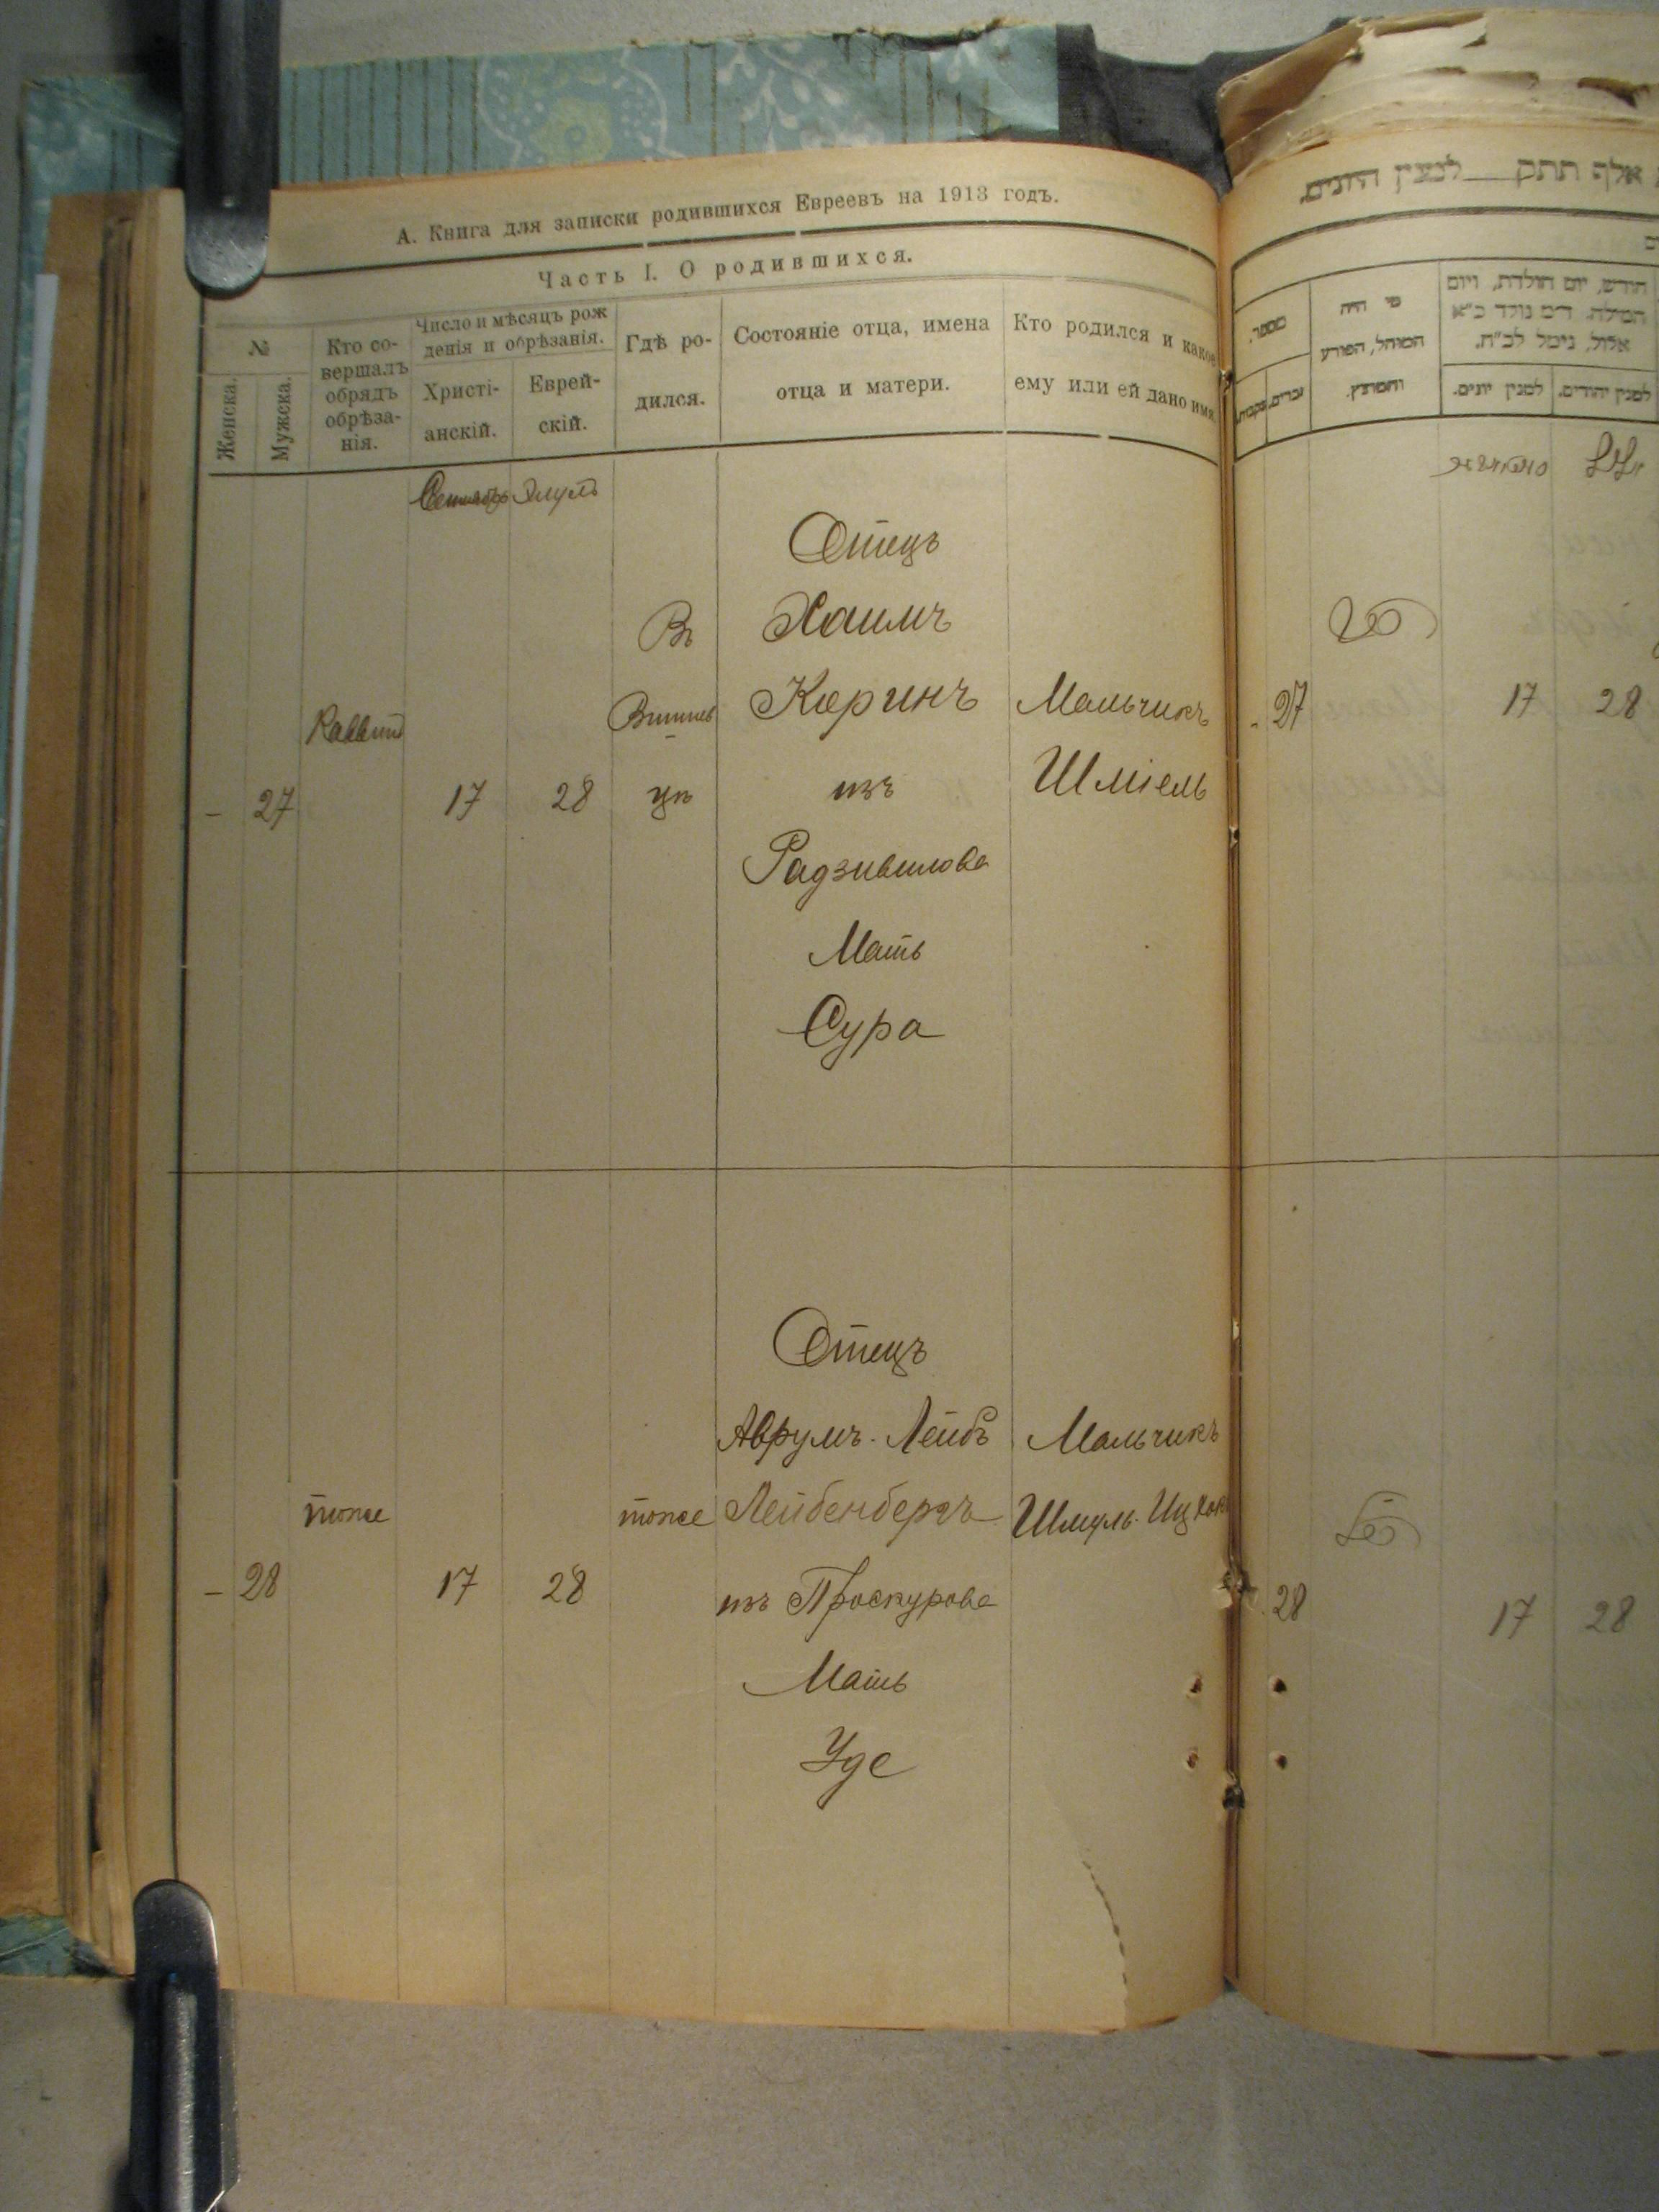 А. Книга для записки родившихся Евреевъ на 1913 годъ.
Часть I. О родившихся.
№
Женска.
Мужска.
Кто со-
вершалъ
обрядъ
обрѣза-
нія.
Число и мѣсяцъ рож
денія и обрѣзанія.
Христі-
анскій.
Еврей-
скій.
Гдѣ ро-
дился.
Состояніе отца, имена
отца и матери.
Кто родился и какое
ему или ей дано имя.
Сентябрь Элулъ
Отецъ
Въ Хаимъ
Коринъ Мальчикъ
Раввинъ
– 27 17 28 цѣ изъ Шміель
Радзивилова
Мать
Сура
Отецъ
Аврумъ-Лейбъ Мальчикъ
тоже тоже Лейбенбергъ Шмуль-Ицхок
– 28 17 28 изъ Проскурова
Мать
Уде
אלף תתק לנצין היונים.
מספר.
עברים.
נקבות.
מי היה
המוהל, הפורע
והמוצץ.
חודש, יום הולדת, ויום
המילה. ד״מ נולד כ״א
אלול, נימל לב״ח.
למנין יונים.
למנין יהודים.
27 17 28
28 17 28